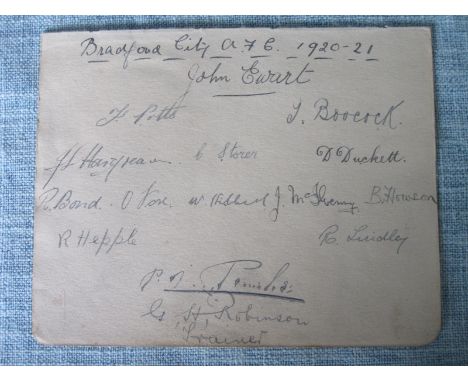 Bradford City A.F.C. 1920-21
John Ewart
F Potts I. Boocock.
H Hargreaves C Storer D Duckett.
R. Bond. O Fox. W Hibbert J. McIlvenny B. Howson
R Hepple R. Lindley
P. J.
G, H, Robinson
Trainer